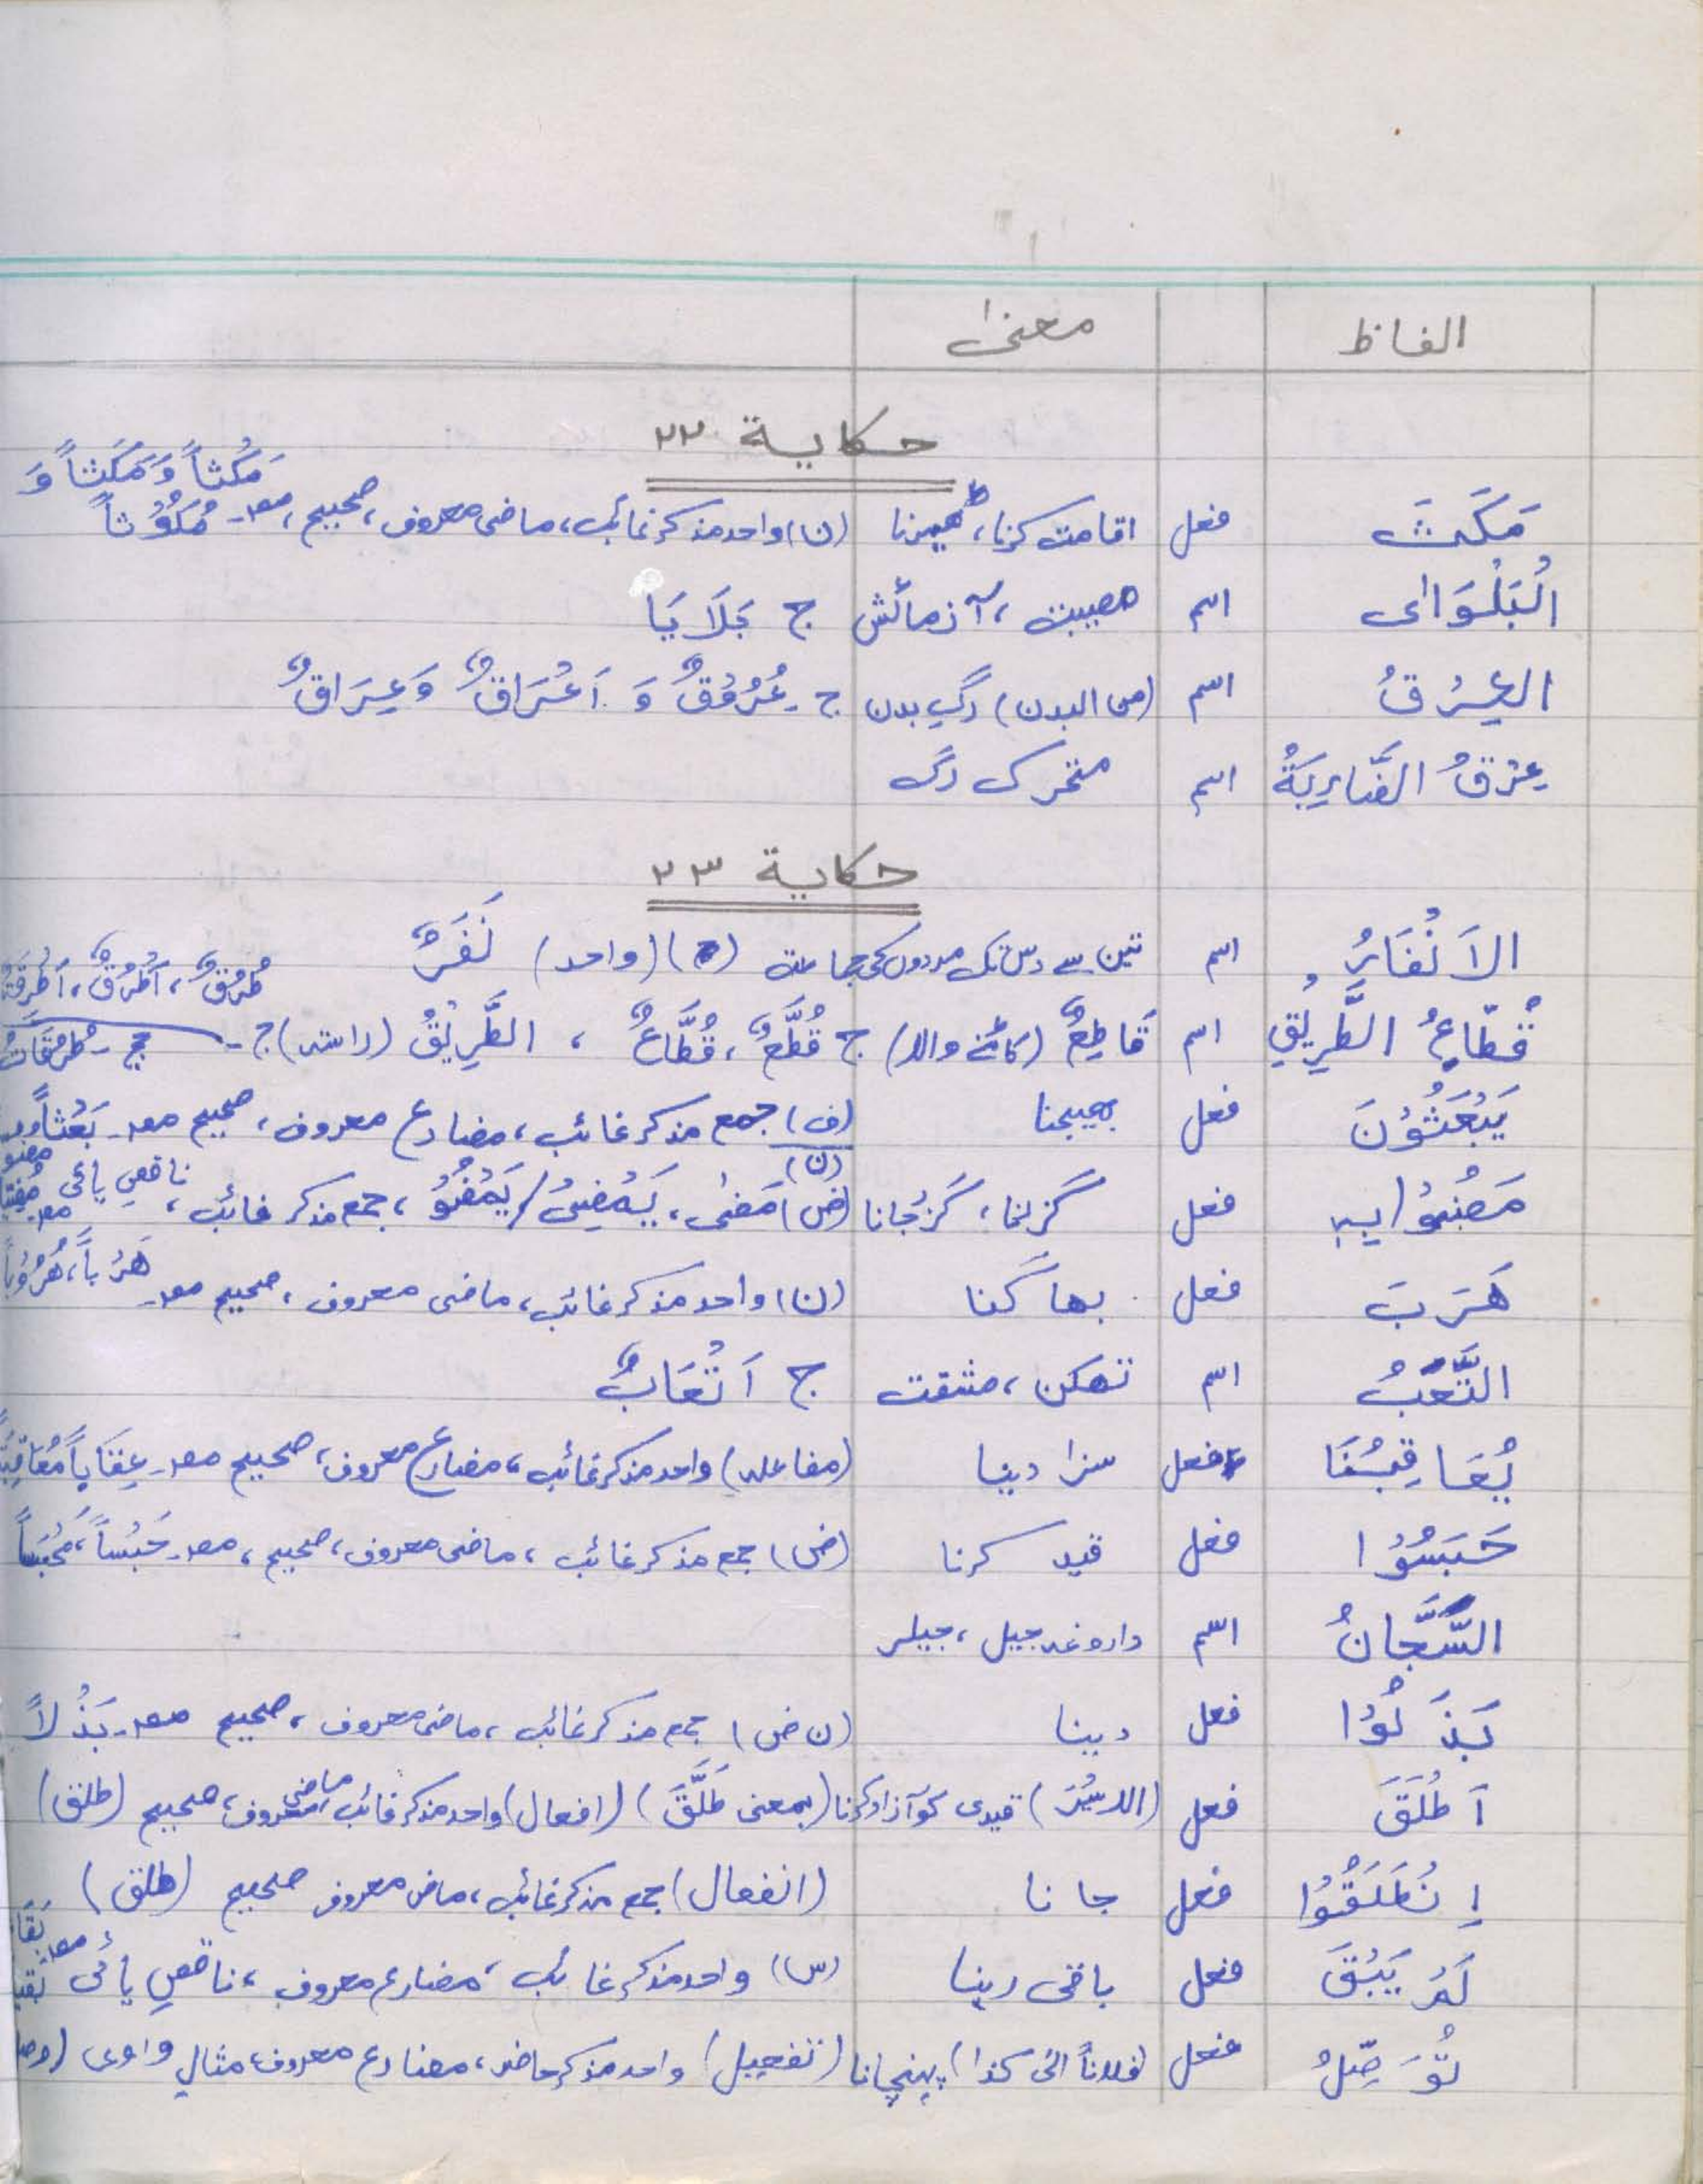 الفاظ معنیٰ
حکایة ٢٢
مَکَثَ فعل اقامت کرنا، ٹھیرنا (ن) واحد مذکر غائب، ماضی معروف، صحیح، مصدر۔ مَکْثاً وَ مَکَثاً وَ مُکُوْثاً
اَلْبَلْوَای اسم مصیبت، آزمائش ج بَلَایَا
العِرْقُ اسم (من البدن) رگِ بدن ج۔ عُرُوْقٌ وَ اَعْرَاقٌ وَعِرَاقٌ
عِرْقُ الضَّارِبَةُ اسم متحرک رگ
حکایة ٢٣
الاَنْفَارُ اسم تین سے دس تک مردوں کی جماعت (واحد) نَفَرٌ
قُطّاعُ الطَّرِيْقِ اسم قَاطِعٌ (کاٹنے والا) ج قُطَّعٌ، قُطَّاعٌ ، الطَّرِيْقُ (راستہ) ج۔ طُرُقٌ، اَطْرُقٌ، اَطْرِقَةٌ جج۔ طُرُقَاتٌ
یَبْعَثُوْنَ فعل بھیجنا (ف) جمع مذکر غائب، مضارع معروف، صحیح مصدر۔ بَعْثاً
مَضَوْا بِہٖ فعل گزرنا، گزر جانا (ض) (ن) مَضٰی، یَمْضِیْ/یَمْضُوْ، جمع مذکر غائب، ناقص یائی
هَرَبَ فعل بھاگنا (ن) واحد مذکر غائب، ماضی معروف، صحیح مصدر۔ هَرْباً، هُرُوْباً
التَّعَبُ اسم تھکن، مشقت ج اَتْعَابٌ
یُعَاقِبُنَا فعل سزا دینا (مفاعلہ) واحد مذکر غائب، مضارع معروف، صحیح مصدر۔ عِقَاباً مُعَاقَبَةً
حَبَسُوْا فعل قید کرنا (ض) جمع مذکر غائب، ماضی معروف، صحیح، مصدر۔ حَبْساً، مَحْبَساً
السَّجَّانُ اسم داروغہ جیل، جیلر
بَذَلُوْا فعل دینا (ن ض) جمع مذکر غائب، ماضی معروف، صحیح مصدر۔ بَذْلاً
اَطْلَقَ فعل (الاسیر) قیدی کو آزاد کرنا (بمعنی طَلَّقَ) (افعال) واحد مذکر غائب، ماضی معروف، صحیح (طلق)
اِنْطَلَقُوْا فعل جانا (انفعال) جمع مذکر غائب، ماضی معروف صحیح (طلق)
لَمْ یَبْقَ فعل باقی رہنا (س) واحد مذکر غائب، مضارع معروف، ناقصِ یائی مصدر
تُوَصِّلُ فعل (فلاناً الی کذا) پہنچانا (تفعیل) واحد مذکر حاضر، مضارع معروف، مثالِ واوی